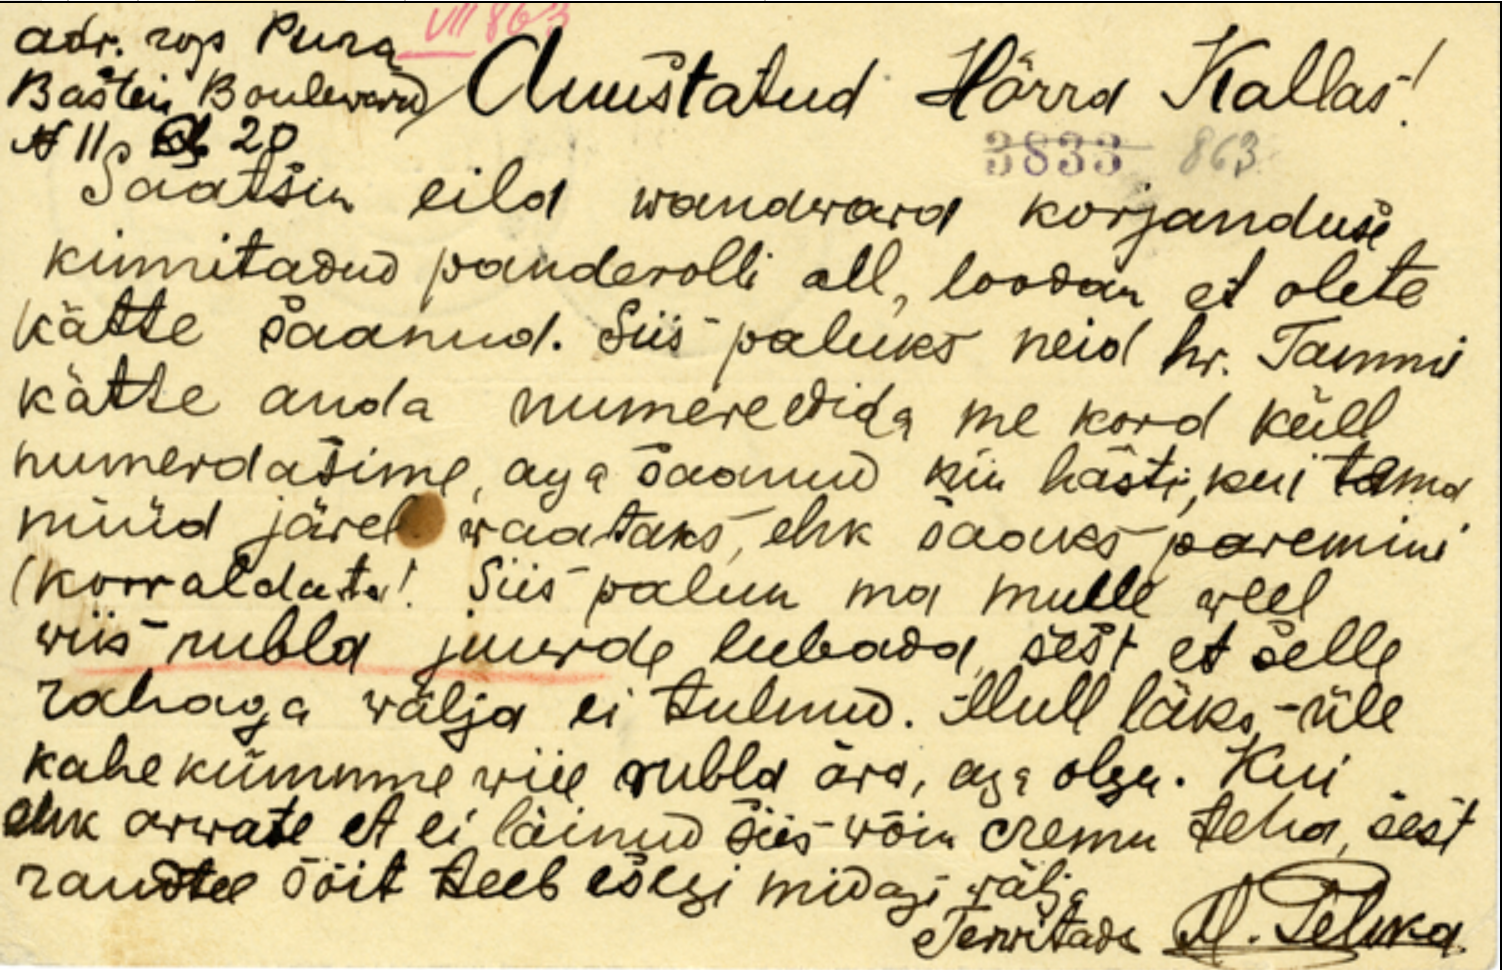 VII 863
adr. гор Рига
Bastein Boulewarrd
N 11 20
Auustatud Hörra Kallas!
3833 863
Saatsin eila wanawara korjanduse
kinnitadud panderolli all, loodan et olete
kätte saanud. Siis paluks neid hr. Tammi
kätte anda numereerida me kord küll
numerdasime, aga saanud nii hästi, kui tema
nüüd järel waataks, ehk saaks paremini
korraldata! Siis palun ma mulle weel
wiis rubla juurde lubada, sest et selle
rahaga wälja ei tulnud. Mull läks üle
kahekümmne wiie rubla ära, aga olgu. Kui
ehk arwate et ei läinud siis wõin aremu teha, sest
raudtee sõit teeb esegi midagi wälja
Terwitades